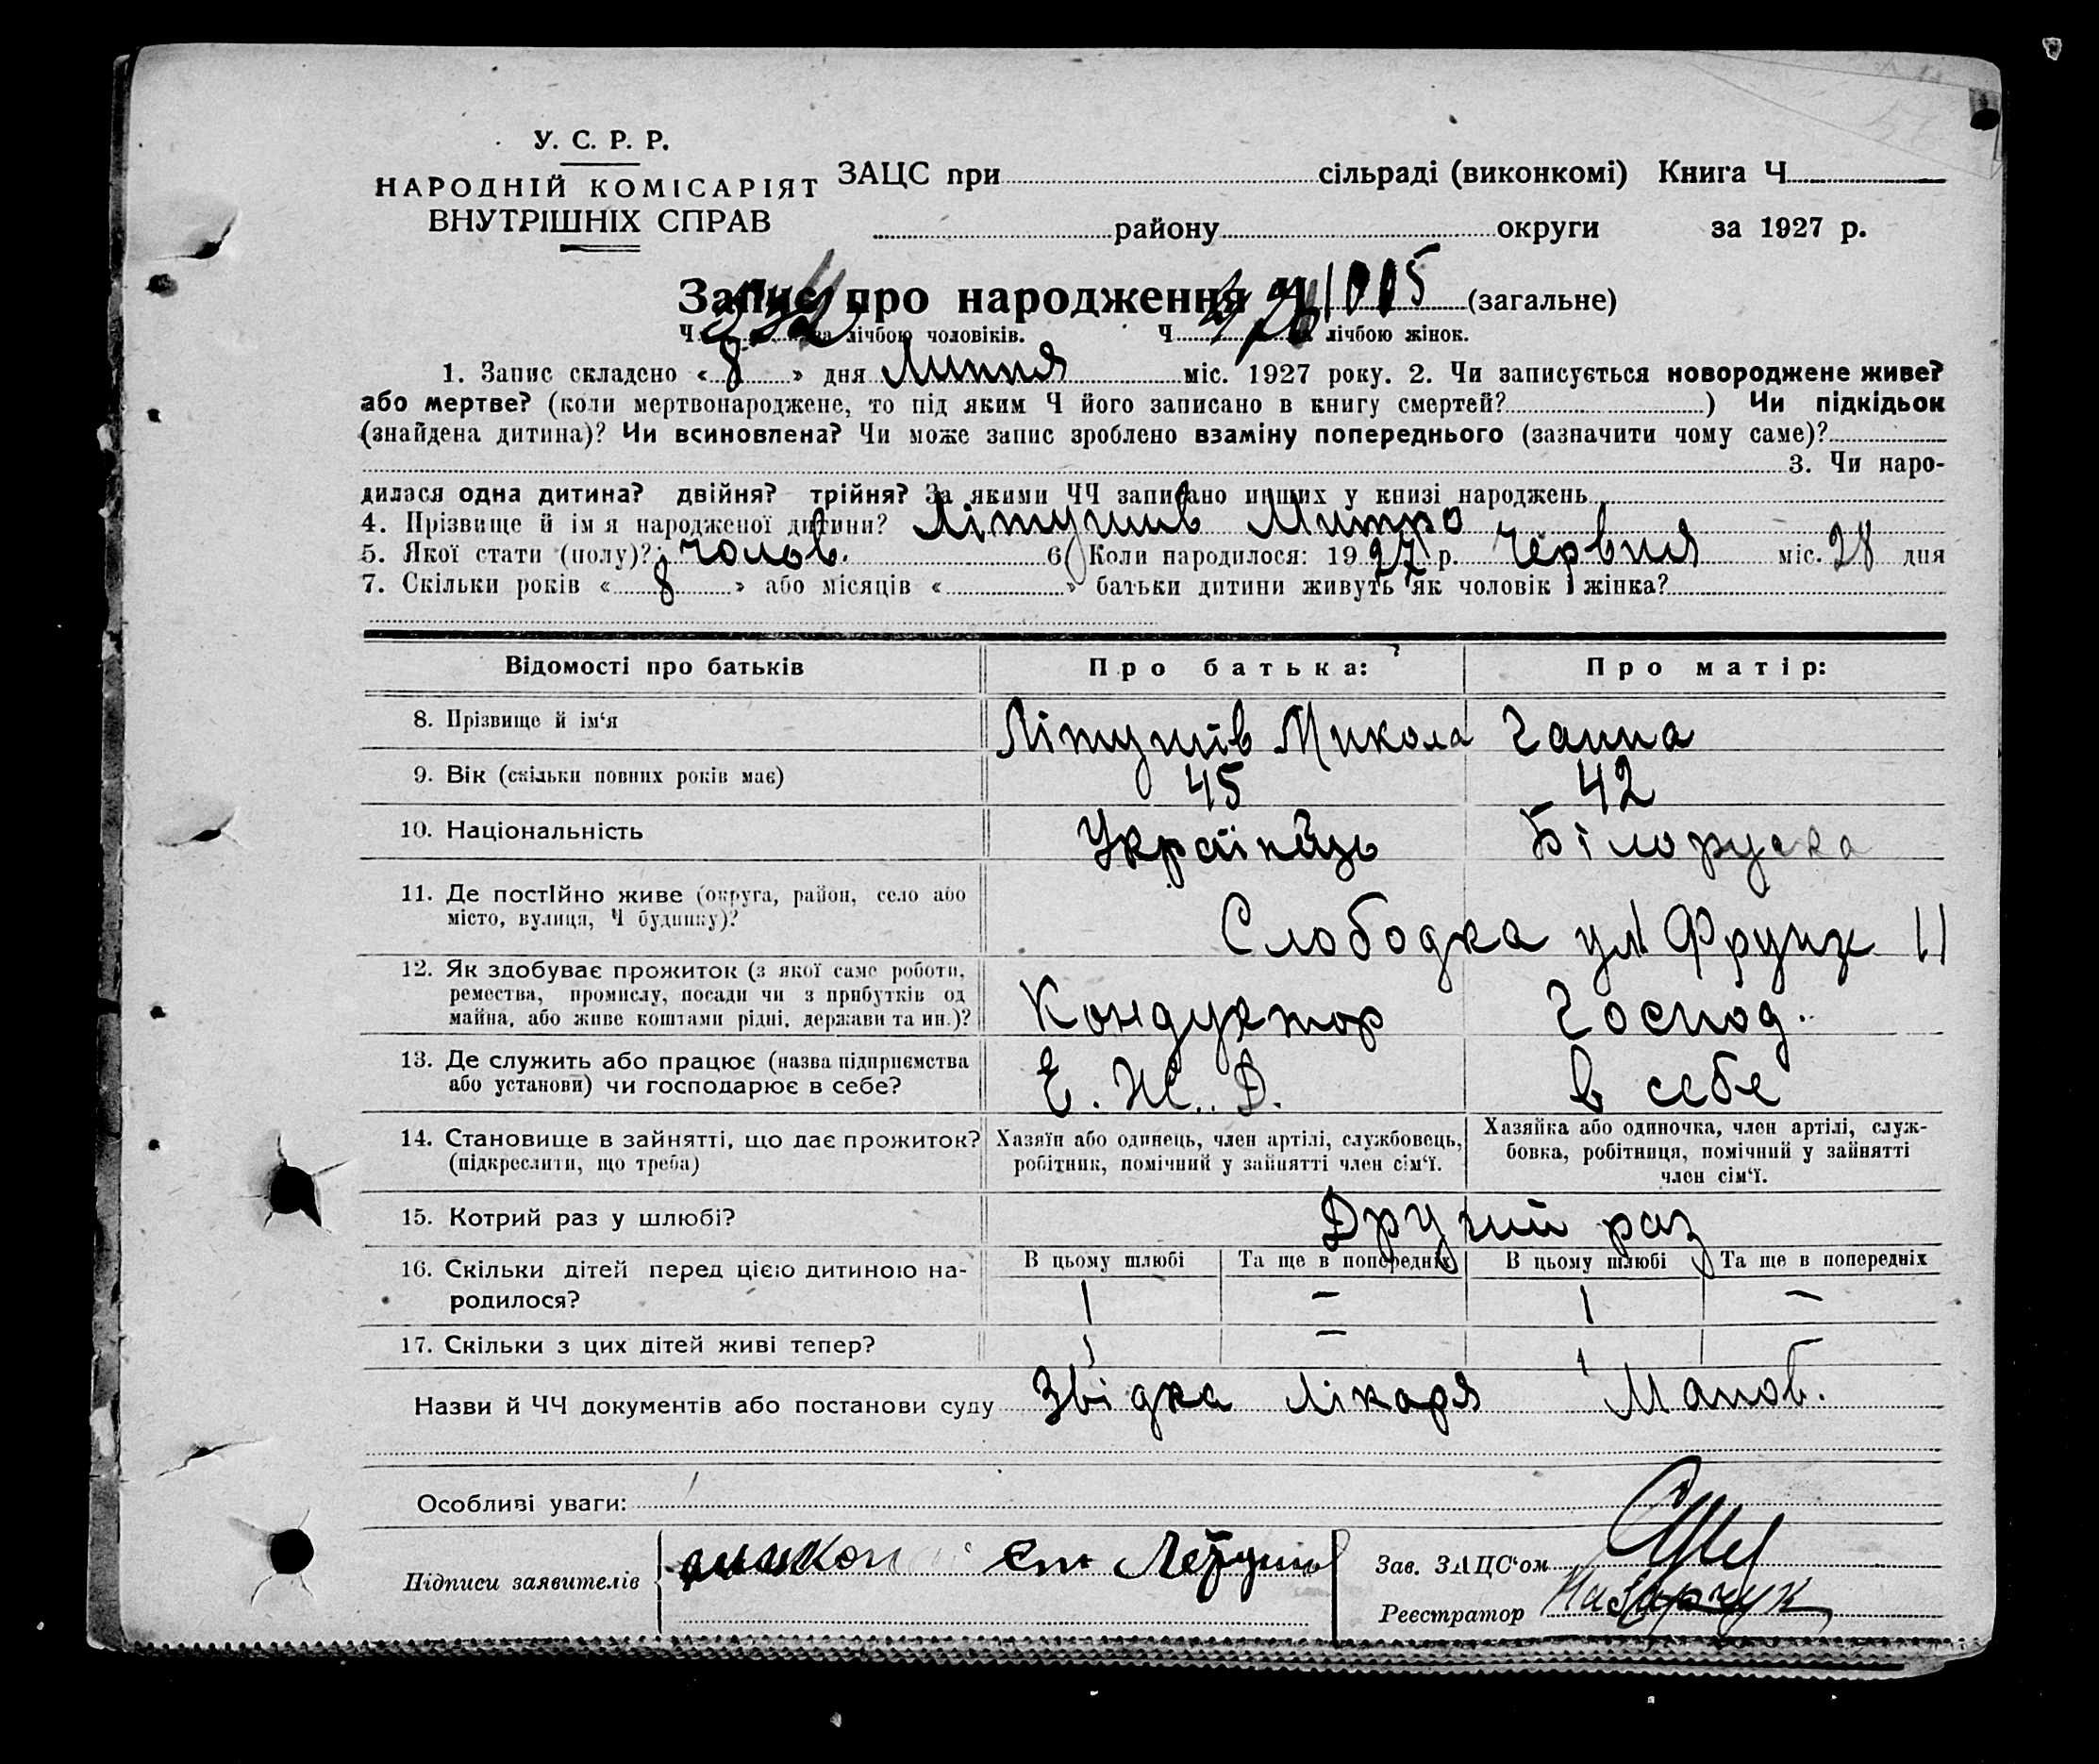 У. С. Р. Р.
НАРОДНІЙ КОМІСАРІЯТ
ВНУТРІШНІХ СПРАВ
ЗАЦС при сільраді (виконкомі) Книга Ч
району округи за 1927 р.
Запис про народження Ч 1005 (загальне)
Ч за лічбою чоловіків. Ч лічбою жінок.
1. Запис складено « 8 » дня Липня міс. 1927 року. 2. Чи записується новороджене живе?
або мертве? (коли мертвонароджене, то під яким Ч його записано в книгу смертей? ) Чи підкідьок
(знайдена дитина)? Чи всиновлена? Чи може запис зроблено взаміну попереднього (зазначити чому саме)?
3. Чи наро-
дилася одна дитина? двійня? трійня? За якими ЧЧ записано инших у книзі народжень
4. Прізвище й ім я народженої дитини? Літушів Митро
5. Якої стати (полу)? чолов. 6. Коли народилося: 1927 р. червня міс. 28 дня
7. Скільки років « 8 » або місяців « » батьки дитини живуть як чоловік і жінка?
Відомості про батьків Про батька: Про матір:
8. Прізвище й ім‘я Літушів Микола Ганна
9. Вік (скільки повних років має) 45 42
10. Національність Українець Білоруска
11. Де постійно живе (округа, район, село або
місто, вулиця, Ч будинку)? Слободка ул Фрунзе 11
12. Як здобуває прожиток (з якої саме роботи,
ремества, промислу, посади чи з прибутків од
майна, або живе коштами рідні, держави та ин.)? Кондуктор Господ.
13. Де служить або працює (назва підприємства
або установи) чи господарює в себе? Е. Ж. Д. в себе
14. Становище в зайнятті, що дає прожиток?
(підкреслити, що треба)
Хазяїн або одинець, член артілі, службовець,
робітник, помічний у зайнятті член сім‘ї.
Хазяйка або одиночка, член артілі, служ-
бовка, робітниця, помічний у зайнятті
член сім‘ї.
15. Котрий раз у шлюбі? Другий раз
В цьому шлюбі Та ще в попередніх В цьому шлюбі Та ще в попередніх
16. Скільки дітей перед цією дитиною на-
родилося? 1 – 1 –
17. Скільки з цих дітей живі тепер? 1 – 1
Назви й ЧЧ документів або постанови суду Звідка лікаря
Особливі уваги:
Підписи заявителів
Зав. ЗАЦС‘ом
Реєстратор Назарчук